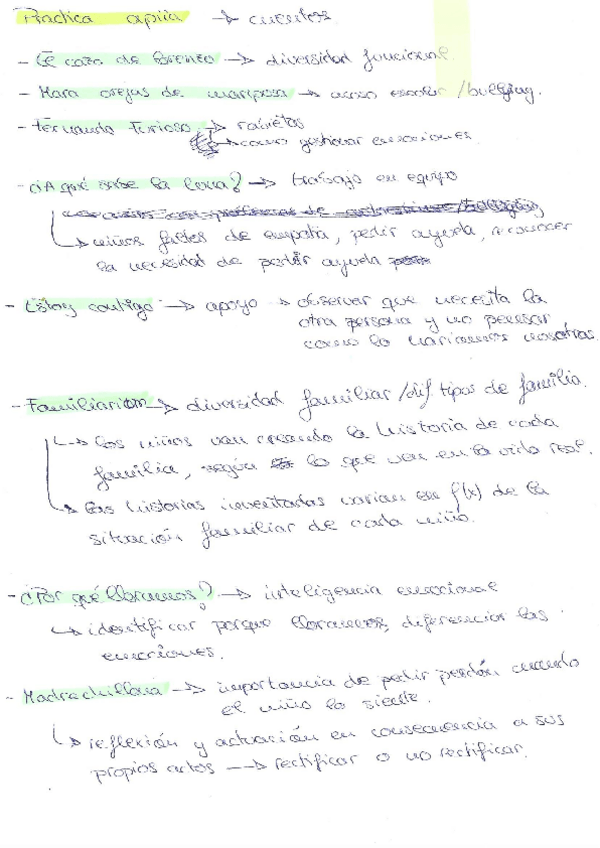 Practica apiia → cuentos
- El cazo de Lorenzo → diversidad funcional.
- Mara orejas de mariposa → acoso escolar / bullying.
- Fernando Furioso → rabietas
↳ como gestionar emociones.
- ¿A qué sabe la luna? → trabajo en equipo
↳ niños faltos de empatía, pedir ayuda, reconocer
la necesidad de pedir ayuda
- Estoy contigo → apoyo → observar que necesita la
otra persona y no pensar
como lo haríamos nosotras.
- Familiarium → diversidad familiar / dif tipos de familia.
↳ los niños van creando la historia de cada
familia, según lo que ven en la vida real.
↳ las historias inventadas varian en f(x) de la
situación familiar de cada niño.
- ¿Por qué lloramos? → inteligencia emocional
↳ identificar porque lloramos, diferenciar las
emociones.
- Madrechillona → importancia de pedir perdón cuando
el niño lo siente.
↳ reflexión y actuación en consecuencia a sus
propios actos → rectificar o no rectificar.